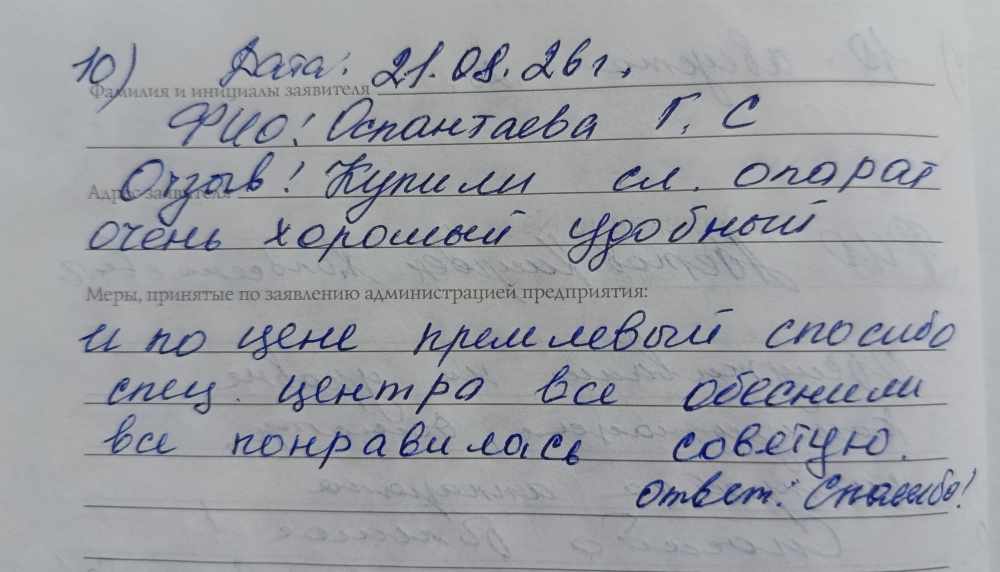 10) Дата: 21.08.26г.
Фамилия и инициалы заявителя
ФИО! Оспантаева Г. С
Отзыв! Купили сл. опарат
Адрес заявителя
очень хоромый удобный
Меры, принятые по заявлению администрацией предприятия:
и по цене премлевый спосибо
спец. центра все обеснили
все понравилась советую.
ответ: Спасибо!